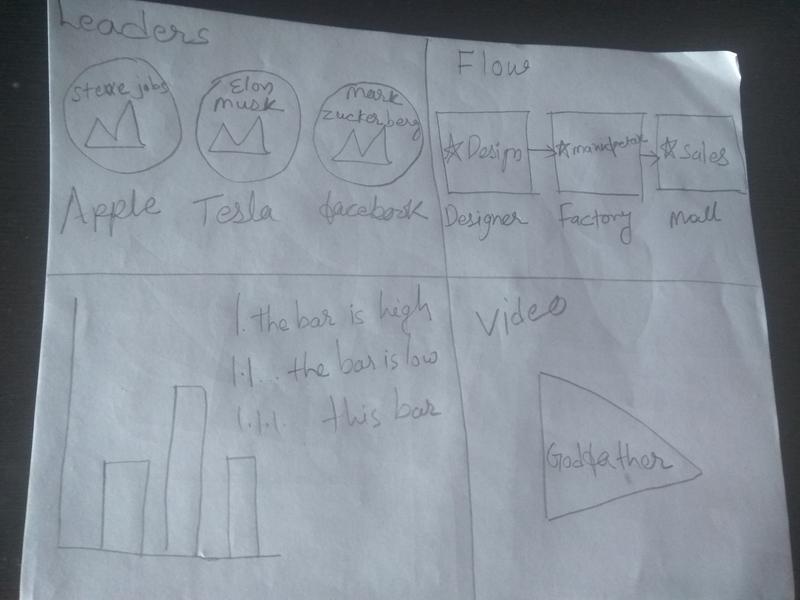 Leaders
steve jobs
Elon
musk
mark
zuckerberg
Apple
Tesla
facebook
Flow
Design
sales
Designer
Factory
mall
1. the bar is high
1.1... the bar is low
1.1.1. this bar
Video
Godfather